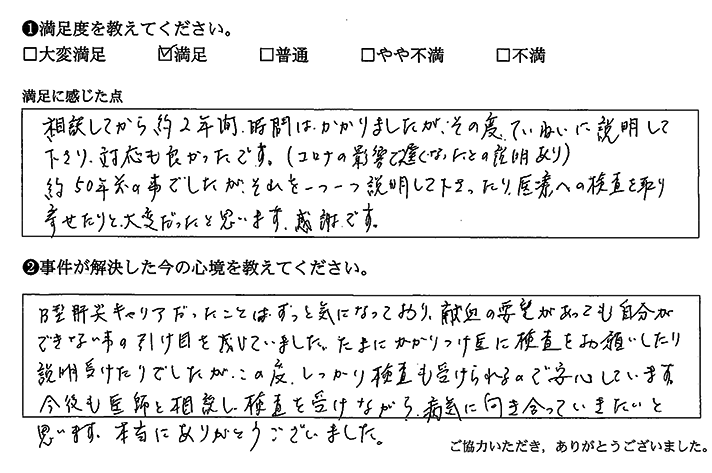 ❶満足度を教えてください。
□大変満足 ☑満足 □普通 □やや不満 □不満
満足に感じた点
相談してから約2年間、時間はかかりましたが、その度、ていねいに説明して
下さり、対応も良かったです。(コロナの影響で遅くなったとの説明あり)
約50年前の事でしたが、それを一つ一つ説明して下さったり、医療への検査を取り
寄せたりと、大変だったと思います、感謝です。
❷事件が解決した今の心境を教えてください。
B型肝炎キャリアだったことは、ずっと気になっており、献血の要望があっても自分が
できない事の引け目を感じていました。たまにかかりつけ医に検査をお願いしたり
説明受けたりでしたが、この度、しっかり検査も受けられるので安心しています。
今後も医師と相談し、検査を受けながら、病気に向き合っていきたいと
思います。本当にありがとうございました。
ご協力いただき，ありがとうございました。